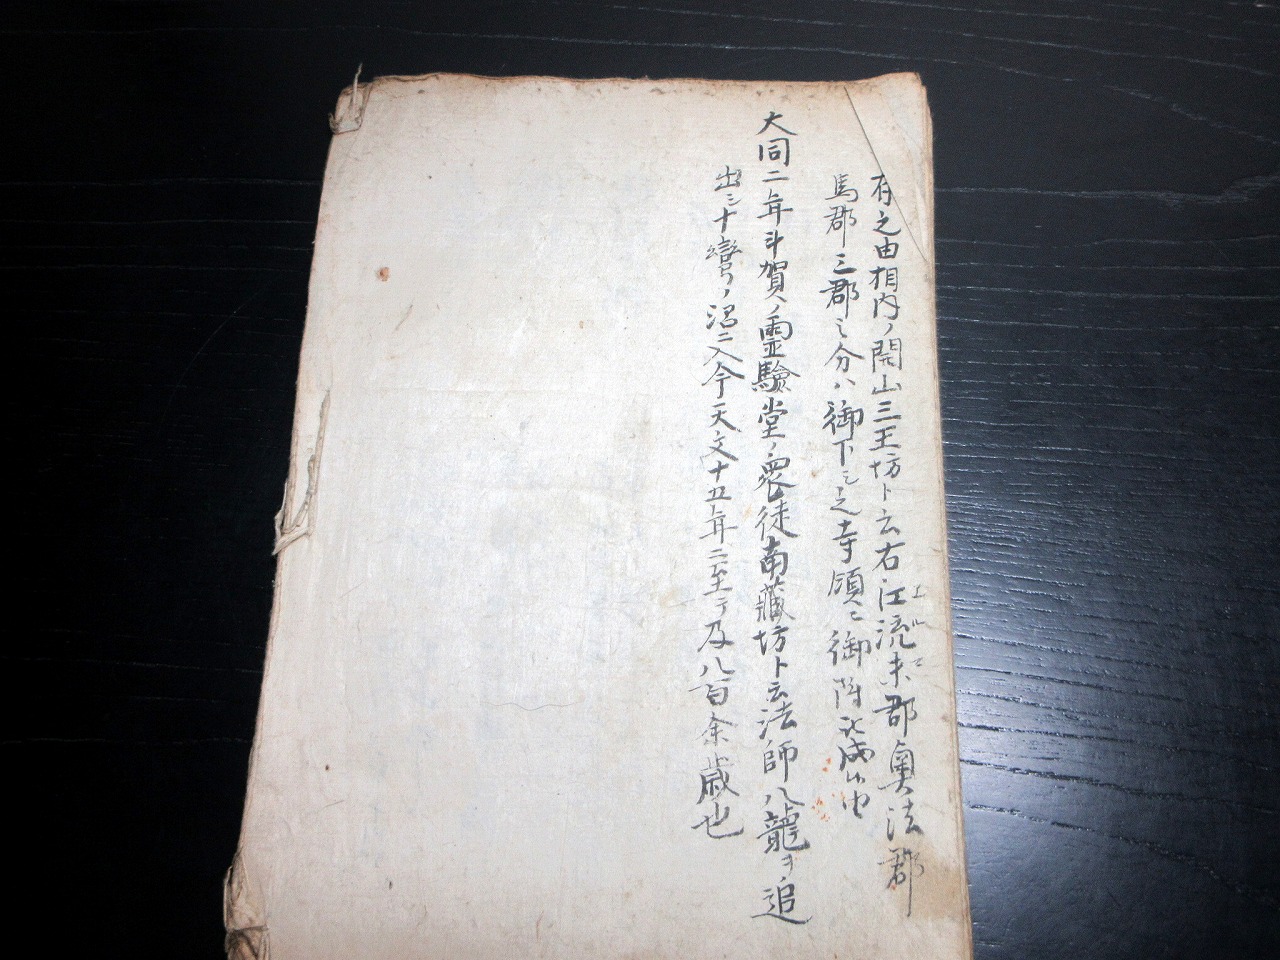 有之由相内ノ開山三王坊ト云右江流末郡奥法郡
エルマ
馬郡三郡之分ハ御下之寺領ニ御附被成候由
大同二年斗賀ノ霊験堂ノ衆徒南蔵坊ト云法師八龍ヲ追
出シ十湾ノ沼ニ入今天文十五年ニ至テ及八百余歳也